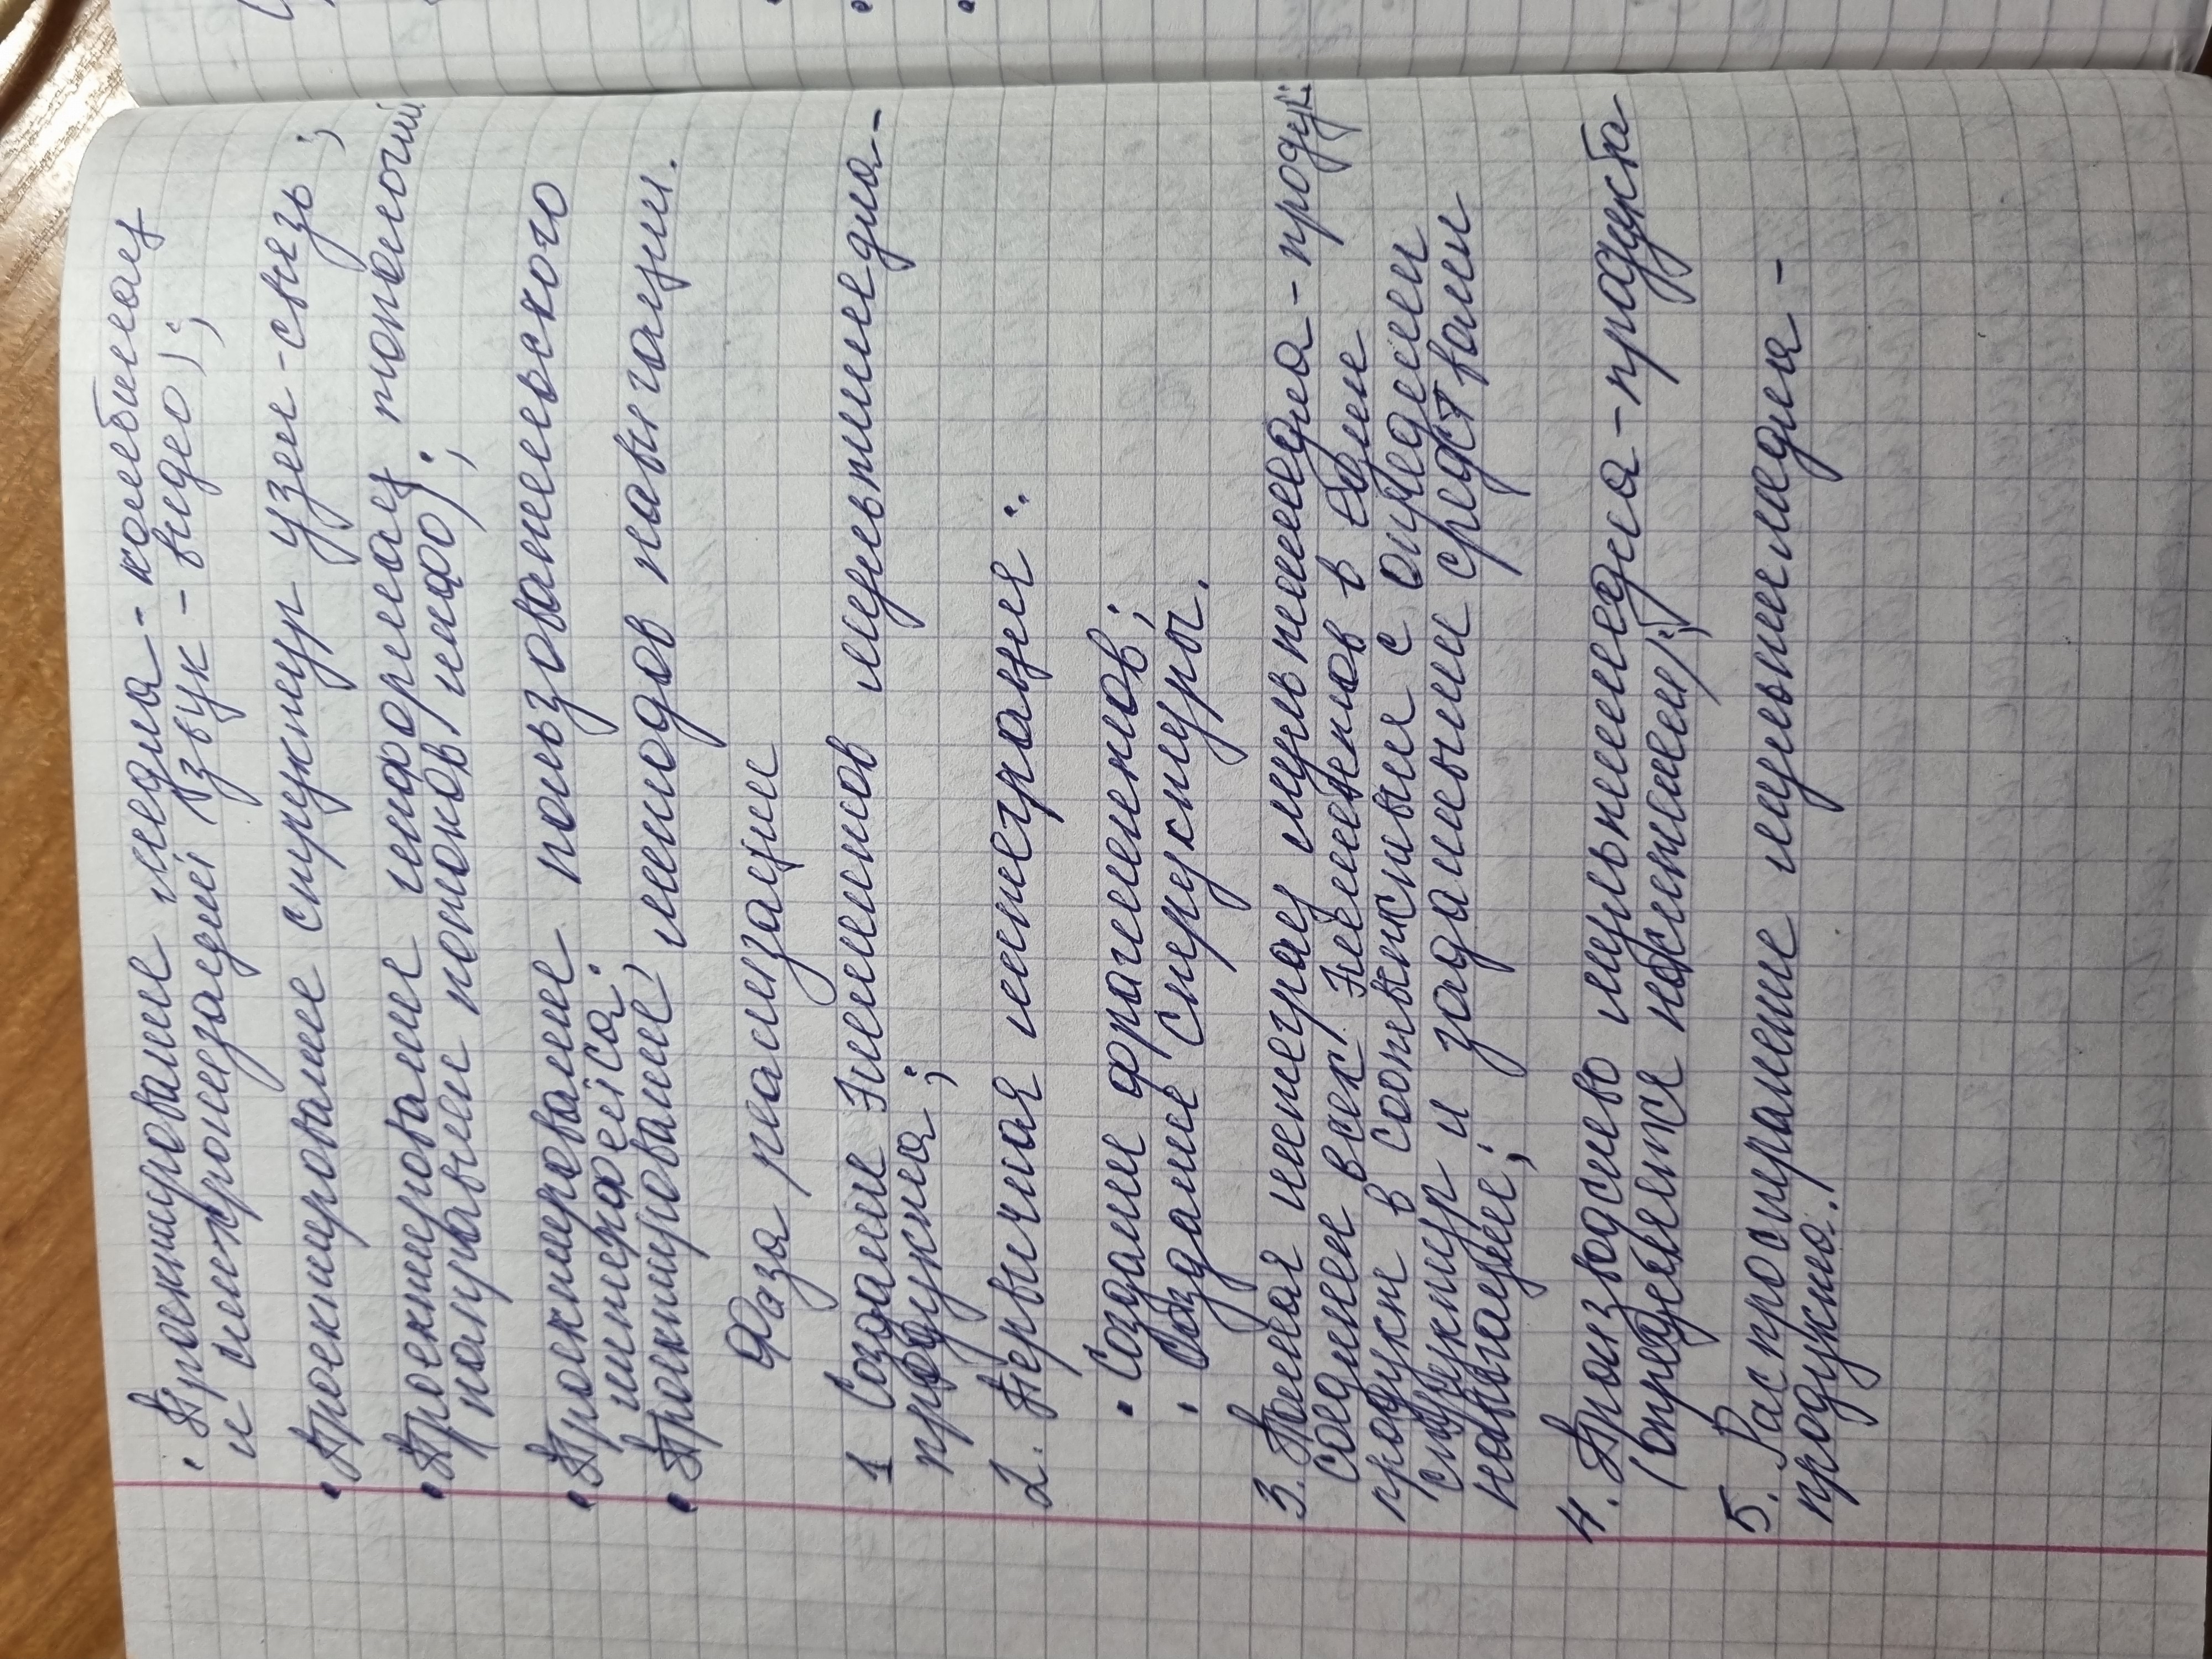 • Проектирование медиа-комбинац
и синхронизаций (звук - видео);
• Проектирование структур узел-связь;
• Проектирование информац топологий
(направлен потоков инфо);
• Проектирование пользовательского
интерфейса;
• Проектирование методов навигации.
Фаза реализации
1 Создание элементов мультимедиа-
продукта;
2. Первичная интеграция:
• Создание фрагментов;
• Создание структуры.
3. Полная интеграц мультимедиа-продук:
соединен всех элементов в един
продукт в соответствии с определен
структур и заданными средствами
навигации;
4. Производство мультимедиа-продукта
(определяется носителем);
5. Распространение мультимедиа-
продукта.